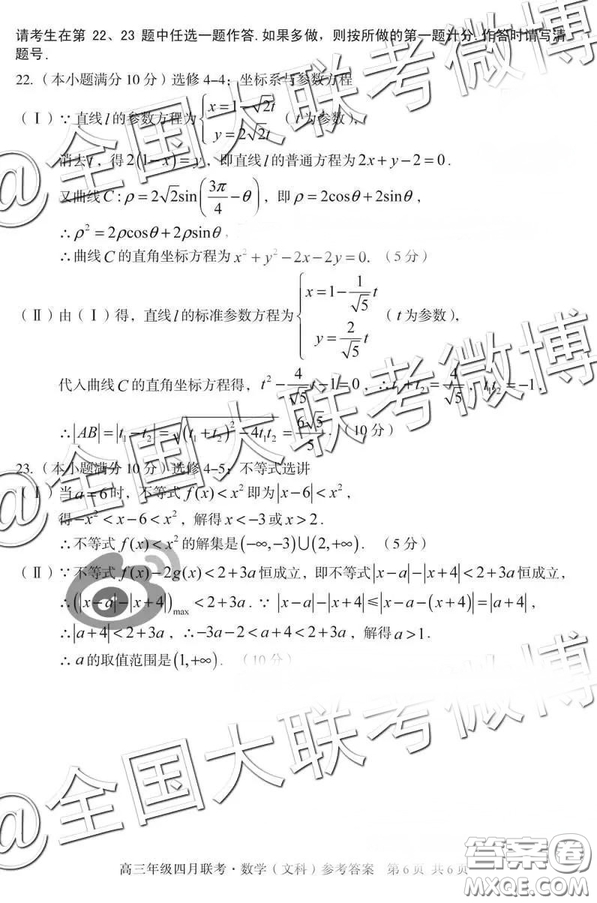 请考生在第 22、23 题中任选一题作答.如果多做，则按所做的第一题计分.作答时请写清
题号.
22.（本小题满分10分）选修4-4：坐标系与参数方程
（Ⅰ）∵直线l的参数方程为{x=1-√2t
y=2√2t （t为参数），
消去t，得2(1-x)=y，即直线l的普通方程为2x+y-2=0.
又曲线C:ρ=2√2sin(3π/4-θ)，即ρ=2cosθ+2sinθ，
∴ρ²=2ρcosθ+2ρsinθ.
∴曲线C的直角坐标方程为x²+y²-2x-2y=0.（5分）
（Ⅱ）由（Ⅰ）得，直线l的标准参数方程为{x=1-1/√5 t
y=2/√5 t （t为参数），
代入曲线C的直角坐标方程得，t²-4/√5 t-1=0，∴t₁+t₂=4/√5，t₁t₂=-1，
∴|AB|=|t₁-t₂|=√((t₁+t₂)²-4t₁t₂)=6√5/5.（10分）
23.（本小题满分10分）选修4-5：不等式选讲
（Ⅰ）当a=6时，不等式f(x)<x²即为|x-6|<x²，
得-x²<x-6<x²，解得x<-3或x>2.
∴不等式f(x)<x²的解集是(-∞,-3)∪(2,+∞).（5分）
（Ⅱ）∵不等式f(x)-2g(x)<2+3a恒成立，即不等式|x-a|-|x+4|<2+3a恒成立，
∴(|x-a|-|x+4|)max<2+3a.∵|x-a|-|x+4|≤|x-a-(x+4)|=|a+4|，
∴|a+4|<2+3a，∴-3a-2<a+4<2+3a，解得a>1.
∴a的取值范围是(1,+∞).（10分）
@全国大联考微博
@全国大联考微博
@全国大联考微博
高三年级四月联考·数学（文科）参考答案 第6页 共6页